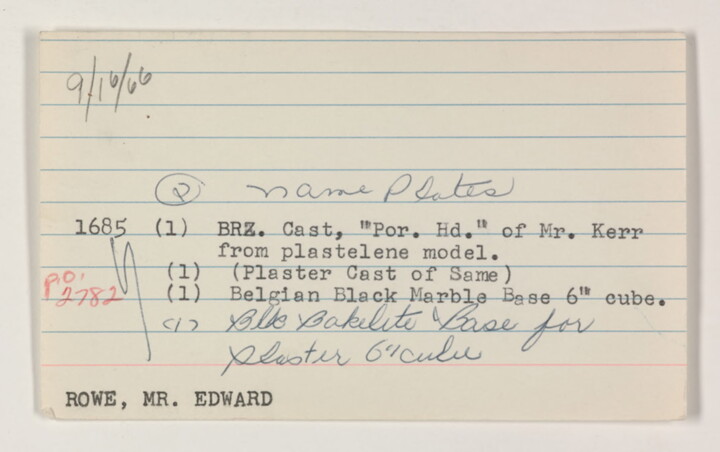 9/16/66
(2) Name Plates
1685 (1) BRZ. Cast, "Por. Hd." of Mr. Kerr
from plastelene model.
(1) (Plaster Cast of Same)
P.O. 2782
(1) Belgian Black Marble Base 6" cube.
(1) Blk Bakelite Base for
plaster 6" cube
ROWE, MR. EDWARD